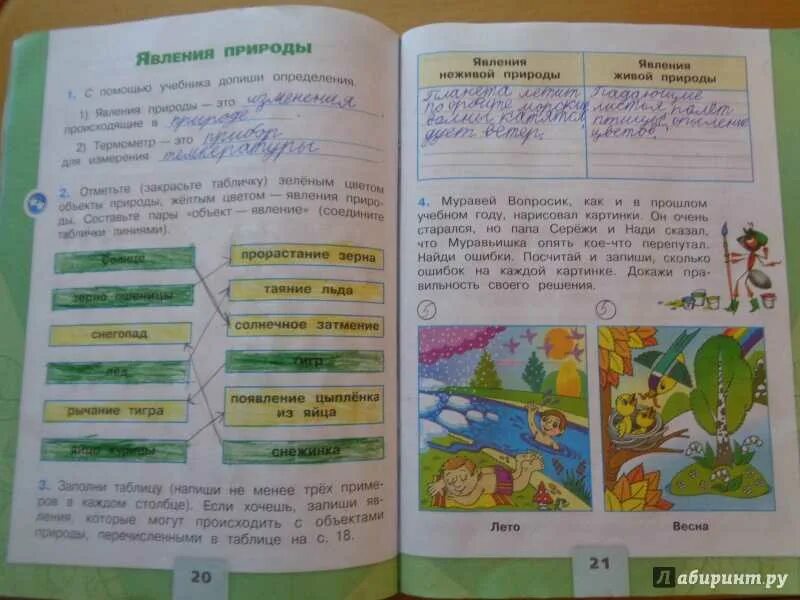 Явления природы
1. С помощью учебника допиши определения.
1) Явления природы — это изменения,
происходящие в природе.
2) Термометр — это прибор
для измерения температуры
2. Отметьте (закрасьте табличку) зелёным цветом
объекты природы, жёлтым цветом — явления приро-
ды. Составьте пары «объект — явление» (соедините
таблички линиями).
солнце
прорастание зерна
зерно пшеницы
таяние льда
снегопад
солнечное затмение
лёд
тигр
рычание тигра
появление цыплёнка
из яйца
яйцо курицы
снежинка
3. Заполни таблицу (напиши не менее трёх приме-
ров в каждом столбце). Если хочешь, запиши яв-
ления, которые могут происходить с объектами
природы, перечисленными в таблице на с. 18.
20
Явления
неживой природы
Явления
живой природы
Планета летит
по орбите морские
волны катятся
дует ветер.
Падающие
листья полёт
птицы, опыление
цветов.
4. Муравей Вопросик, как и в прошлом
учебном году, нарисовал картинки. Он очень
старался, но папа Серёжи и Нади сказал,
что Муравьишка опять кое-что перепутал.
Найди ошибки. Посчитай и запиши, сколько
ошибок на каждой картинке. Докажи пра-
вильность своего решения.
5
5
Лето
Весна
21
Лабиринт.ру